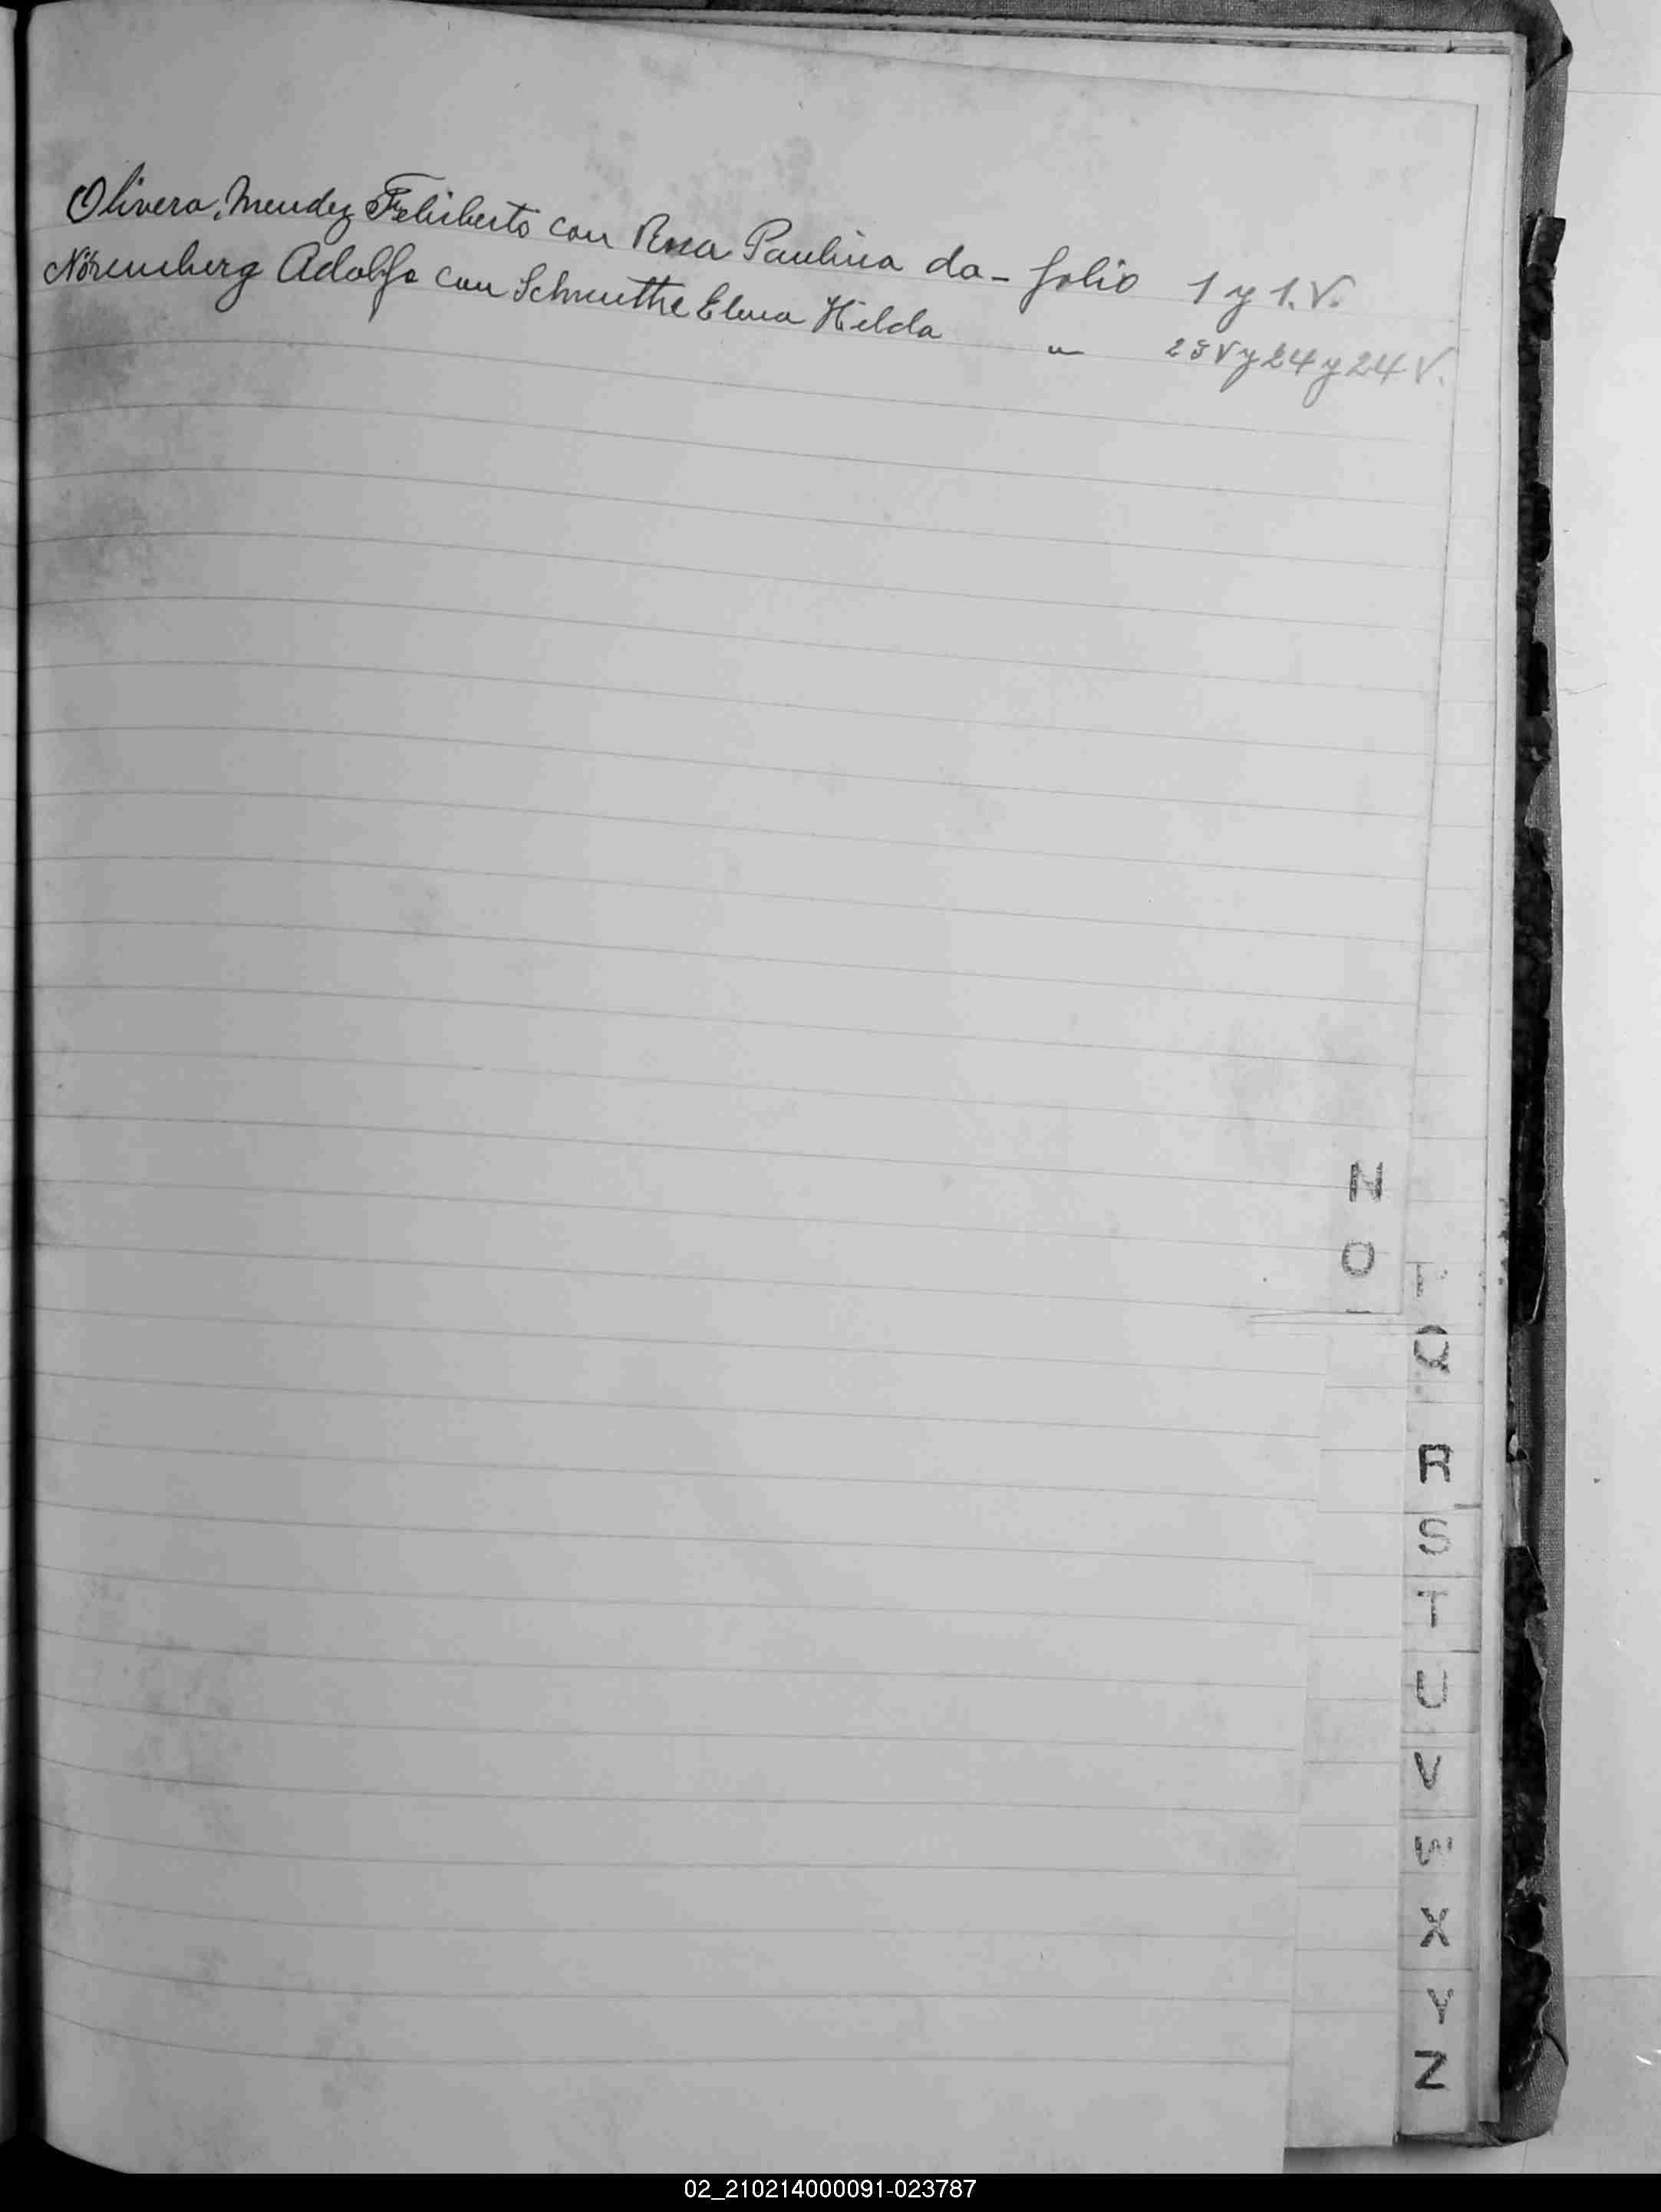 Olivera, Mendez Feliberto con Rosa Paulina da - folio 1 y 1.V.
Nöremberg Adolfo con Schmuthe Elma Hilda " 23V y 24 y 24 V.
N
O
P
Q
R
S
T
U
V
W
X
Y
Z
02_210214000091-023787